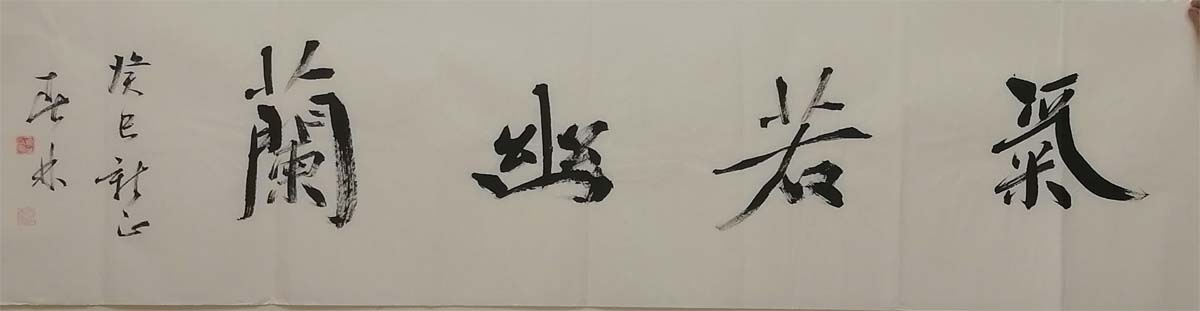 氣若幽蘭
癸巳新正
春林